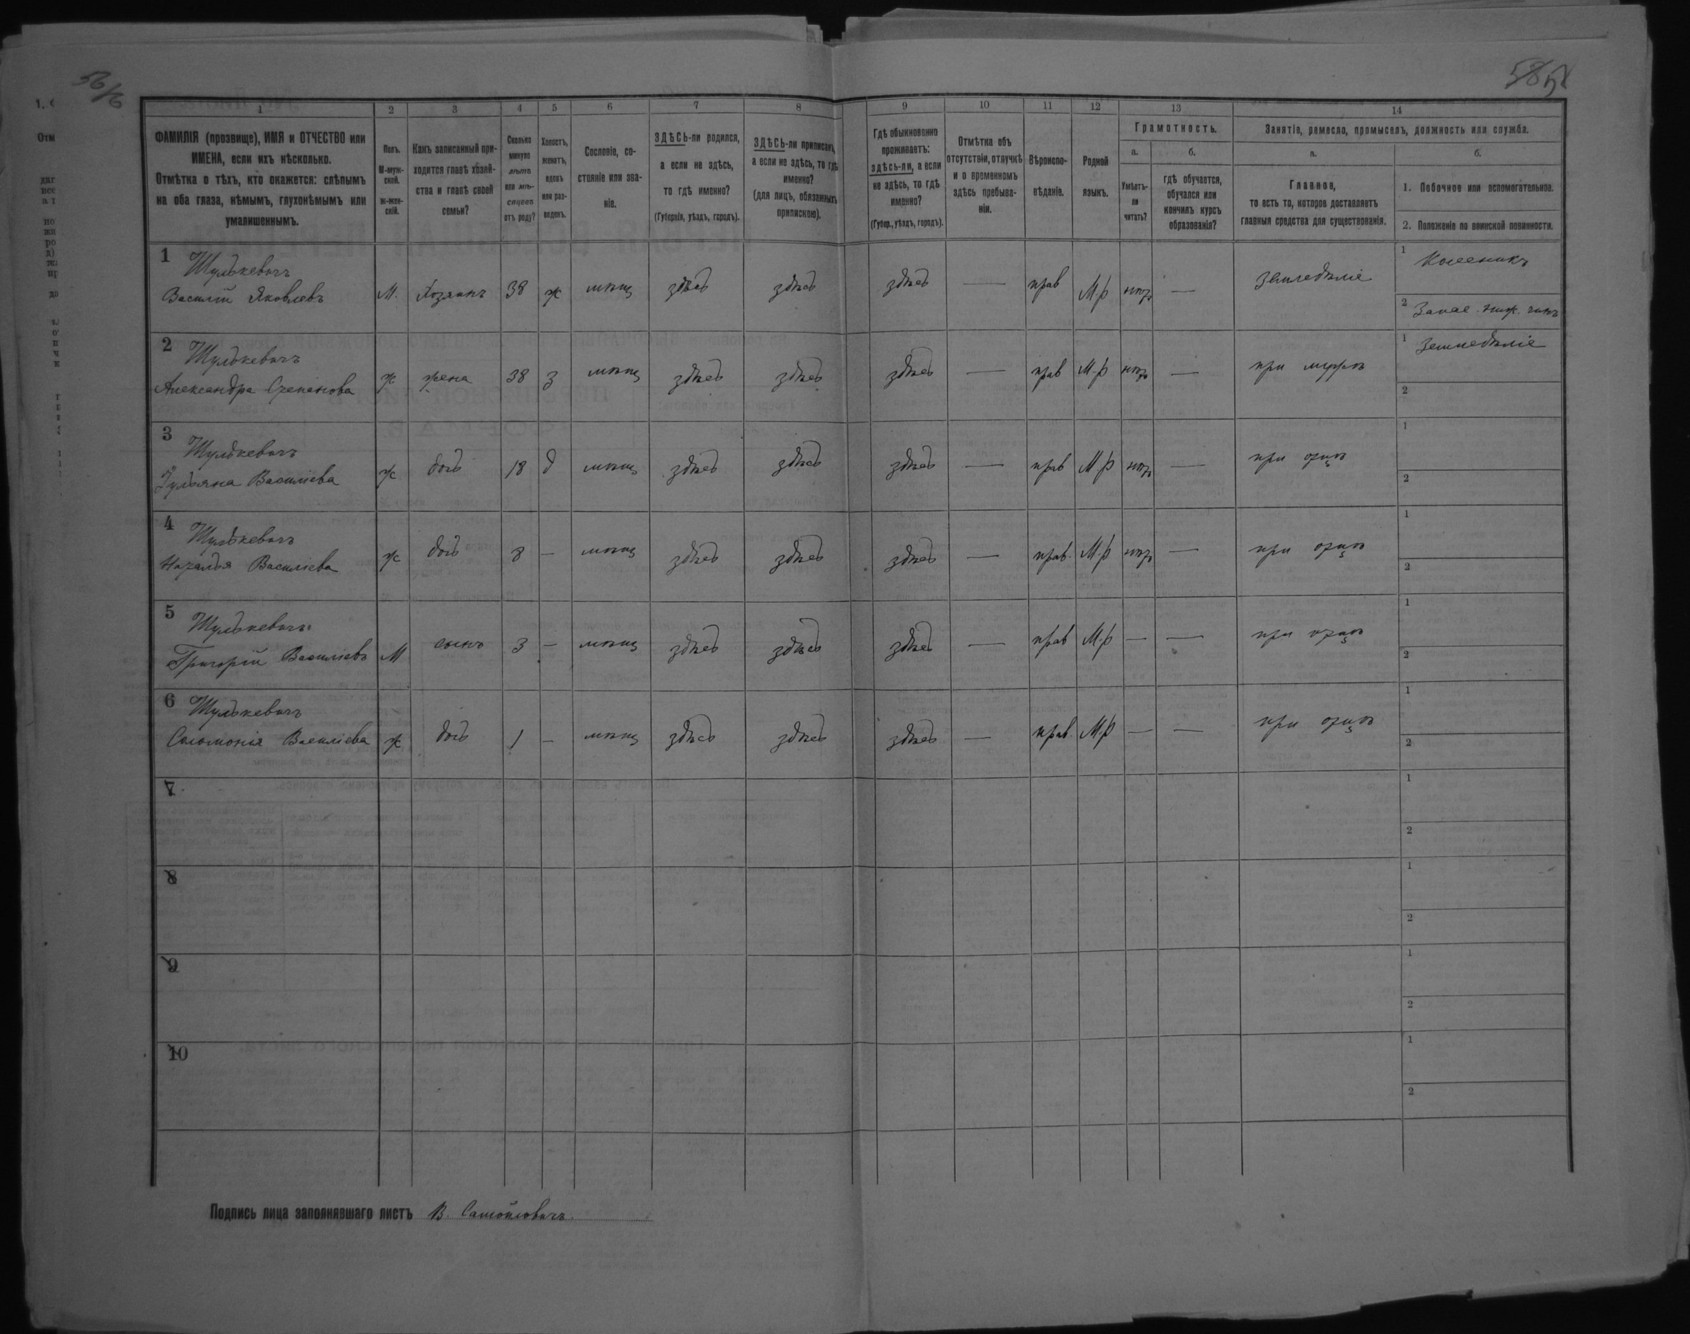 1 2 3 4 5 6 7 8 9 10 11 12 13 14
ФАМИЛІЯ (прозвище), ИМЯ и ОТЧЕСТВО или
ИМЕНА, если ихъ нѣсколько.
Отмѣтка о тѣхъ, кто окажется: слѣпымъ
на оба глаза, нѣмымъ, глухонѣмымъ или
умалишеннымъ.
Полъ.
М-муж-
ской.
ж-жен-
скій.
Какъ записанный при-
ходится главѣ хозяй-
ства и главѣ своей
семьи?
Сколько
минуло
лѣтъ
или мѣ-
сяцевъ
отъ роду?
Холостъ,
женатъ,
вдовъ
или раз-
веденъ.
Сословіе, со-
стояніе или зва-
ніе.
ЗДѢСЬ-ли родился,
а если не здѣсь,
то гдѣ именно?
(Губернія, уѣздъ, городъ).
ЗДѢСЬ-ли приписанъ,
а если не здѣсь, то гдѣ
именно?
(для лицъ, обязанныхъ
припискою).
Гдѣ обыкновенно
проживаетъ:
здѣсь-ли, а если
не здѣсь, то гдѣ
именно?
(Губер., уѣздъ, городъ).
Отмѣтка объ
отсутствіи, отлучкѣ
и о временномъ
здѣсь пребыва-
ніи.
Вѣроиспо-
вѣданіе.
Родной
языкъ.
Грамотность.
а.
Умѣетъ-
ли
читать?
б.
гдѣ обучается,
обучался или
кончилъ курсъ
образованія?
Занятіе, ремесло, промыселъ, должность или служба.
а.
Главное,
то есть то, которое доставляетъ
главныя средства для существованія.
б.
1. Побочное или вспомогательное.
2. Положеніе по воинской повинности.
1 Шулькевичъ
Василій Яковлевъ М. Хозяинъ 38 ж мѣщ здѣсь здѣсь здѣсь — прав М.р нѣтъ — земледѣліе
1 Колесникъ
2 Запас. ниж. чинъ
2 Шулькевичъ
Александра Степанова ж жена 38 з мѣщ здѣсь здѣсь здѣсь — прав М.р нѣтъ — при мужѣ
1 Земледѣліе
2
3 Шулькевичъ
Ульяна Василіева ж дочь 18 д мѣщ здѣсь здѣсь здѣсь — прав М.р нѣтъ — при отцѣ
1
2
4 Шулькевичъ
Наталья Василіева ж дочь 8 — мѣщ здѣсь здѣсь здѣсь — прав. М.р нѣтъ — при отцѣ
1
2
5 Шулькевичъ
Григорій Василіевъ М сынъ 3 — мѣщ здѣсь здѣсь здѣсь — прав М.р — — при отцѣ
1
2
6 Шулькевичъ
Соломонія Василіева ж дочь 1 — мѣщ здѣсь здѣсь здѣсь — прав. М.р — — при отцѣ
1
2
7
1
2
8
1
2
9
1
2
10
1
2
Подпись лица заполнявшаго листъ В. Самойловичъ